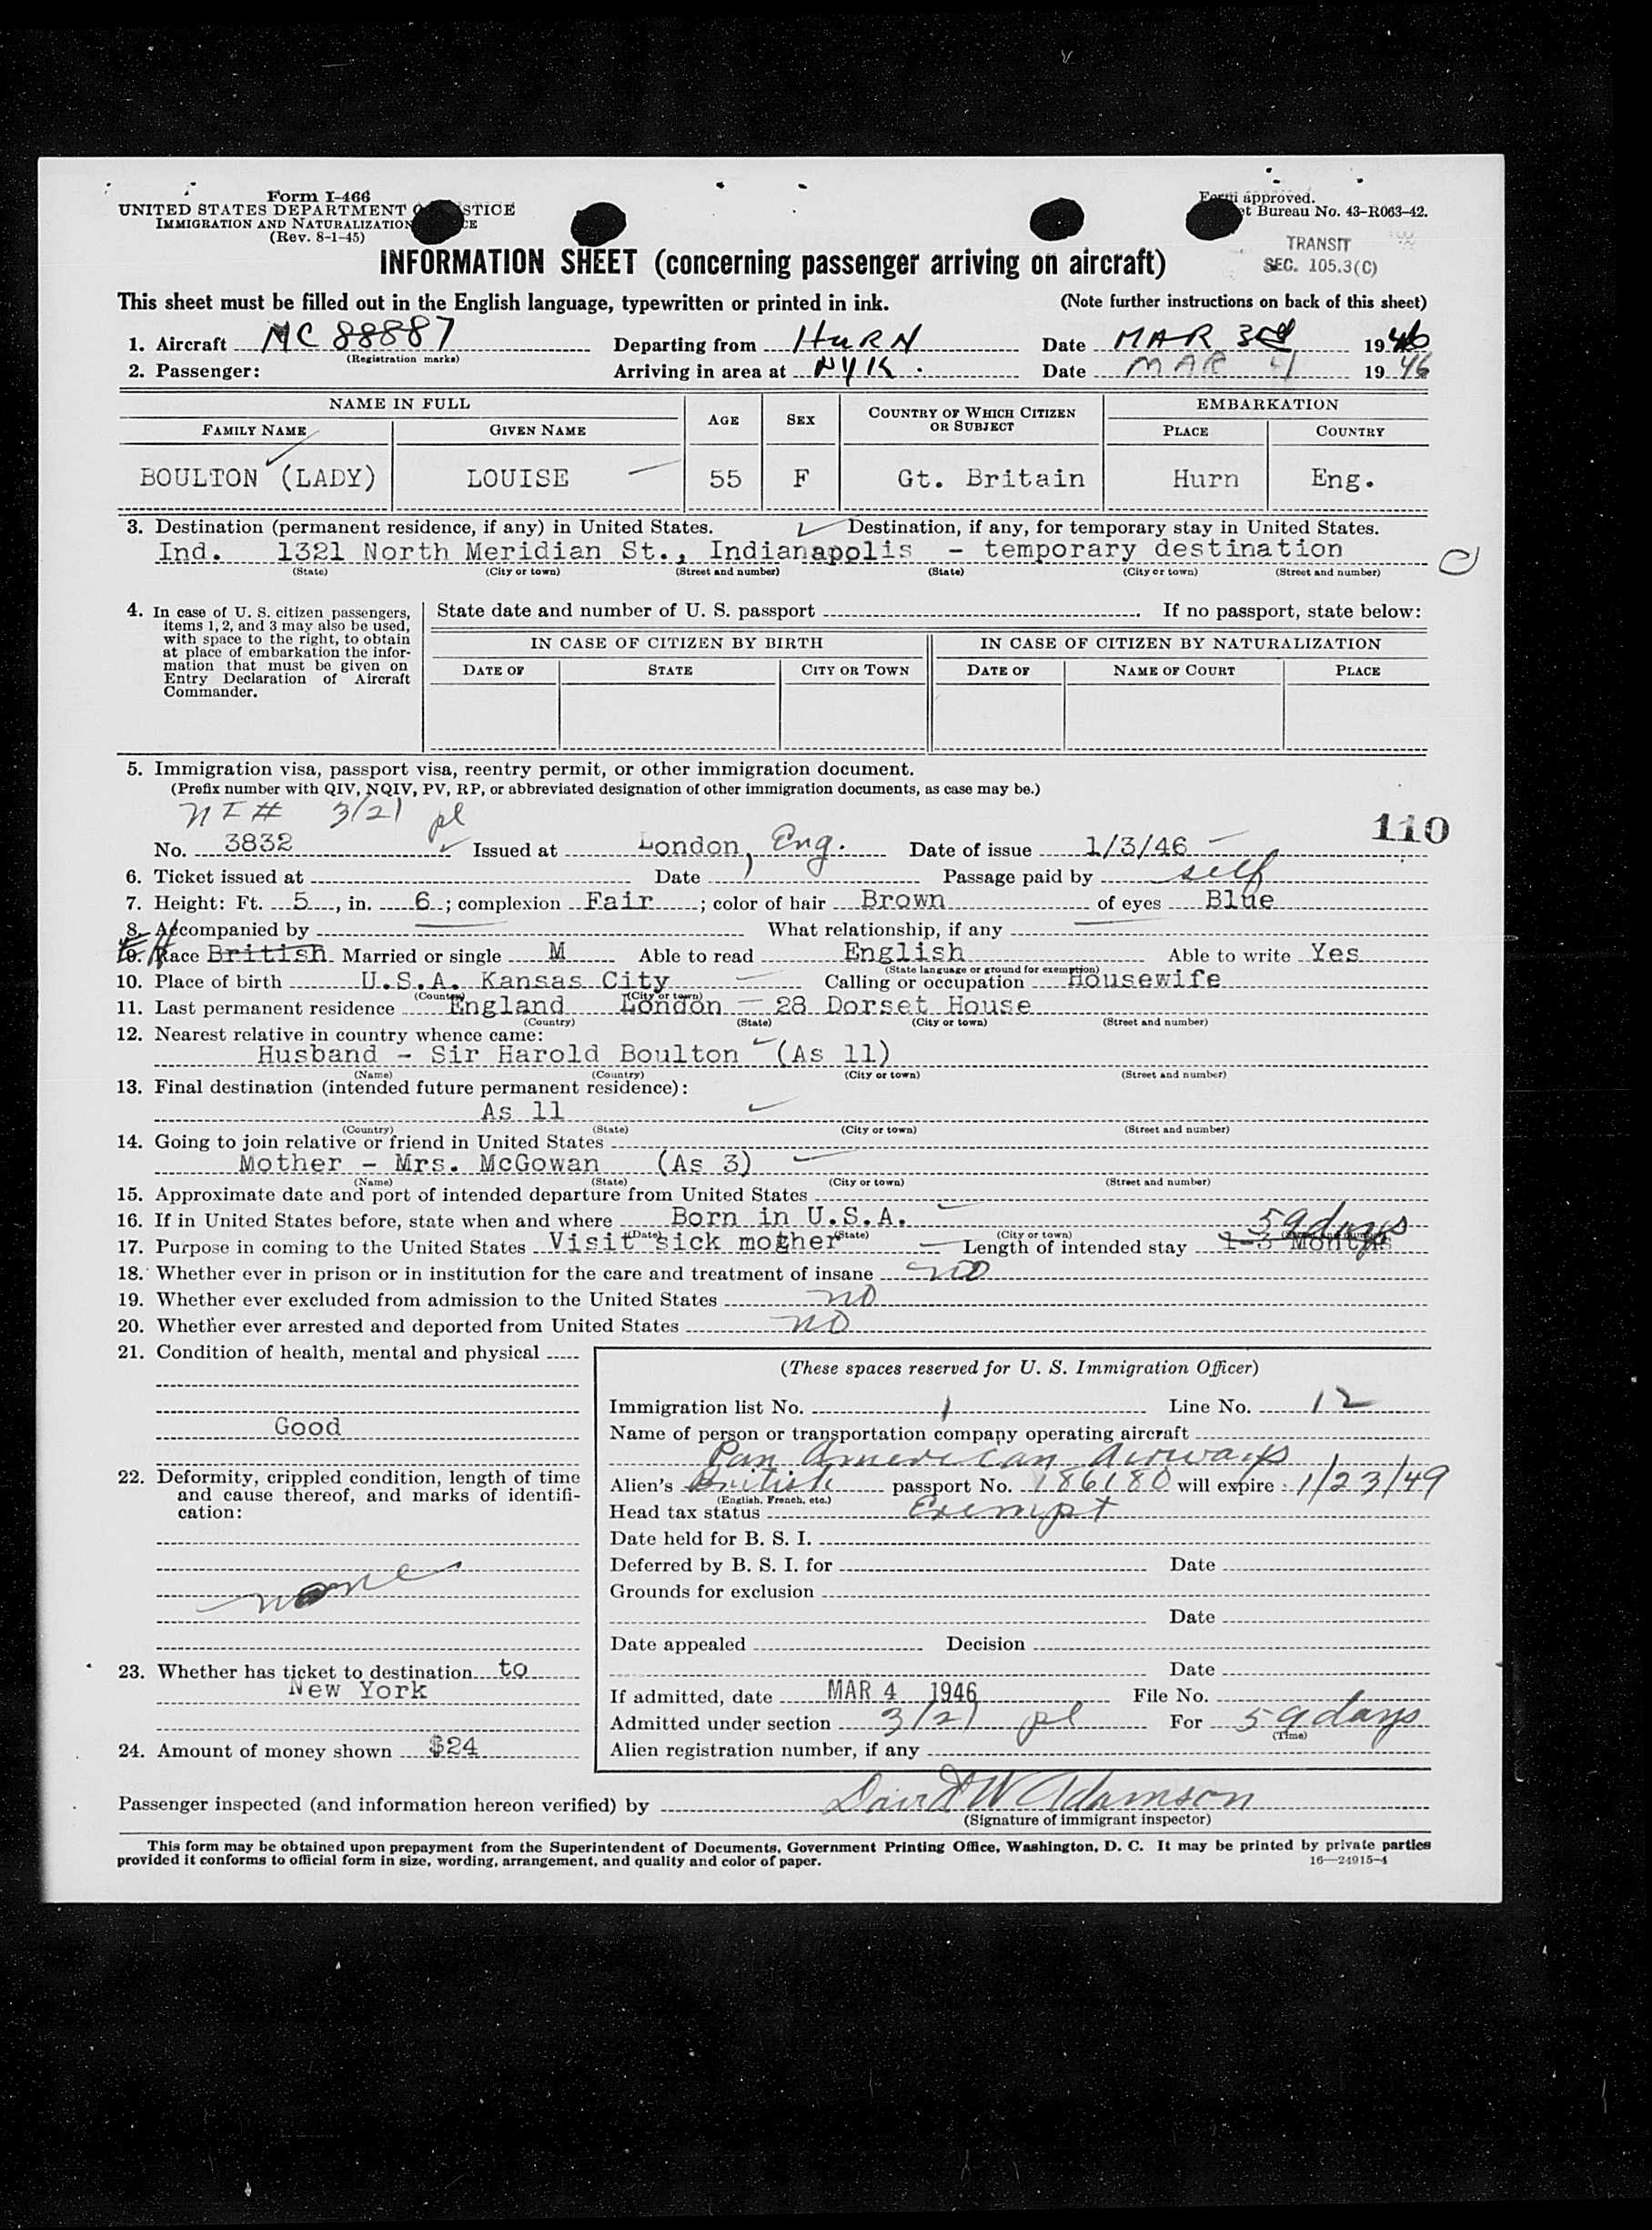 Form I-466
UNITED STATES DEPARTMENT STICE
IMMIGRATION AND NATURALIZATION CE
(Rev. 8-1-45)
Form approved.
et Bureau No. 43-R063-42.
TRANSIT
SEC. 105.3(C)
INFORMATION SHEET (concerning passenger arriving on aircraft)
This sheet must be filled out in the English language, typewritten or printed in ink. (Note further instructions on back of this sheet)
1. Aircraft NC 88887 Departing from HURN Date MAR 3rd 1946
(Registration marks)
2. Passenger: Arriving in area at NYK. Date MAR 4 1946
NAME IN FULL AGE SEX COUNTRY OF WHICH CITIZEN OR SUBJECT EMBARKATION
FAMILY NAME GIVEN NAME PLACE COUNTRY
BOULTON (LADY) LOUISE 55 F Gt. Britain Hurn Eng.
3. Destination (permanent residence, if any) in United States. Destination, if any, for temporary stay in United States.
Ind. 1321 North Meridian St., Indianapolis - temporary destination
(State) (City or town) (Street and number) (State) (City or town) (Street and number)
4. In case of U. S. citizen passengers, items 1, 2, and 3 may also be used, with space to the right, to obtain at place of embarkation the information that must be given on Entry Declaration of Aircraft Commander.
State date and number of U. S. passport . If no passport, state below:
IN CASE OF CITIZEN BY BIRTH IN CASE OF CITIZEN BY NATURALIZATION
DATE OF STATE CITY OR TOWN DATE OF NAME OF COURT PLACE
5. Immigration visa, passport visa, reentry permit, or other immigration document.
(Prefix number with QIV, NQIV, PV, RP, or abbreviated designation of other immigration documents, as case may be.)
NI# 3/21 pl
110
No. 3832 Issued at London, Eng. Date of issue 1/3/46
6. Ticket issued at Date Passage paid by self
7. Height: Ft. 5, in. 6; complexion Fair; color of hair Brown of eyes Blue
8. Accompanied by What relationship, if any
9. Race British Married or single M Able to read English Able to write Yes
(State language or ground for exemption)
10. Place of birth U.S.A. Kansas City Calling or occupation Housewife
(Country) (City or town)
11. Last permanent residence England London - 28 Dorset House
(Country) (State) (City or town) (Street and number)
12. Nearest relative in country whence came:
Husband - Sir Harold Boulton (As 11)
(Name) (Country) (City or town) (Street and number)
13. Final destination (intended future permanent residence):
As 11
(Country) (State) (City or town) (Street and number)
14. Going to join relative or friend in United States
Mother - Mrs. McGowan (As 3)
(Name) (State) (City or town) (Street and number)
15. Approximate date and port of intended departure from United States
16. If in United States before, state when and where Born in U.S.A.
(Date) (State) (City or town)
59 days
17. Purpose in coming to the United States Visit sick mother Length of intended stay 1-3 Months
18. Whether ever in prison or in institution for the care and treatment of insane no
19. Whether ever excluded from admission to the United States no
20. Whether ever arrested and deported from United States no
21. Condition of health, mental and physical
Good
22. Deformity, crippled condition, length of time and cause thereof, and marks of identification:
none
23. Whether has ticket to destination to
New York
24. Amount of money shown $24
(These spaces reserved for U. S. Immigration Officer)
Immigration list No. 1 Line No. 12
Name of person or transportation company operating aircraft
Pan American Airways
Alien's British passport No. 186180 will expire 1/23/49
(English, French, etc.)
Head tax status Exempt
Date held for B. S. I.
Deferred by B. S. I. for Date
Grounds for exclusion
Date
Date appealed Decision
Date
If admitted, date MAR 4 1946 File No.
Admitted under section 3/21 pl For 59 days
(Time)
Alien registration number, if any
Passenger inspected (and information hereon verified) by David W Adamson
(Signature of immigrant inspector)
This form may be obtained upon prepayment from the Superintendent of Documents, Government Printing Office, Washington, D. C. It may be printed by private parties
provided it conforms to official form in size, wording, arrangement, and quality and color of paper. 16—24915-4